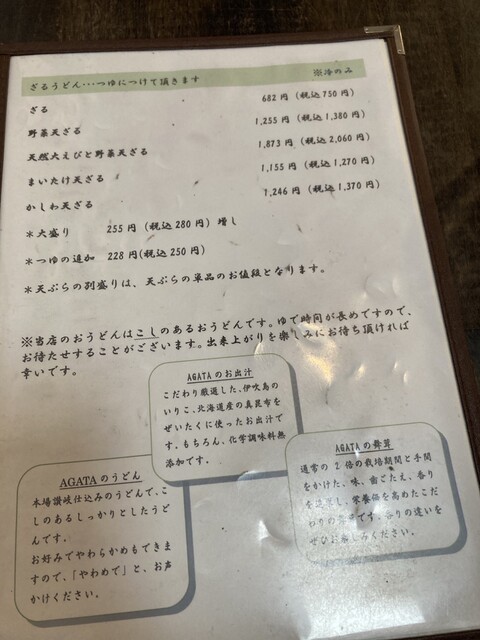 ざるうどん･･･つゆにつけて頂きます ※冷のみ
ざる 682円（税込750円）
野菜天ざる 1,255円（税込1,380円）
天然大えびと野菜天ざる 1,873円（税込2,060円）
まいたけ天ざる 1,155円（税込1,270円）
かしわ天ざる 1,246円（税込1,370円）
＊大盛り 255円（税込280円）増し
＊つゆの追加 228円(税込250円)
＊天ぷらの別盛りは、天ぷらの単品のお値段となります。
※当店のおうどんはこしのあるおうどんです。ゆで時間が長めですので、
お待たせすることがございます。出来上がりを楽しみにお待ち頂ければ
幸いです。
AGATAのお出汁
こだわり厳選した、伊吹島の
いりこ、北海道産の真昆布を
ぜいたくに使ったお出汁で
す。もちろん、化学調味料無
添加です。
AGATAの舞茸
通常の2倍の栽培期間と手間
をかけた、味、歯ごたえ、香り
を し、栄養価を高めたこだ
わりの です。 りの違いを
ぜひお しみください。
AGATAのうどん
本場讃岐仕込みのうどんで、こ
しのあるしっかりとしたうど
んです。
お好みでやわらかめもできま
すので、「やわめで」と、お声
かけください。